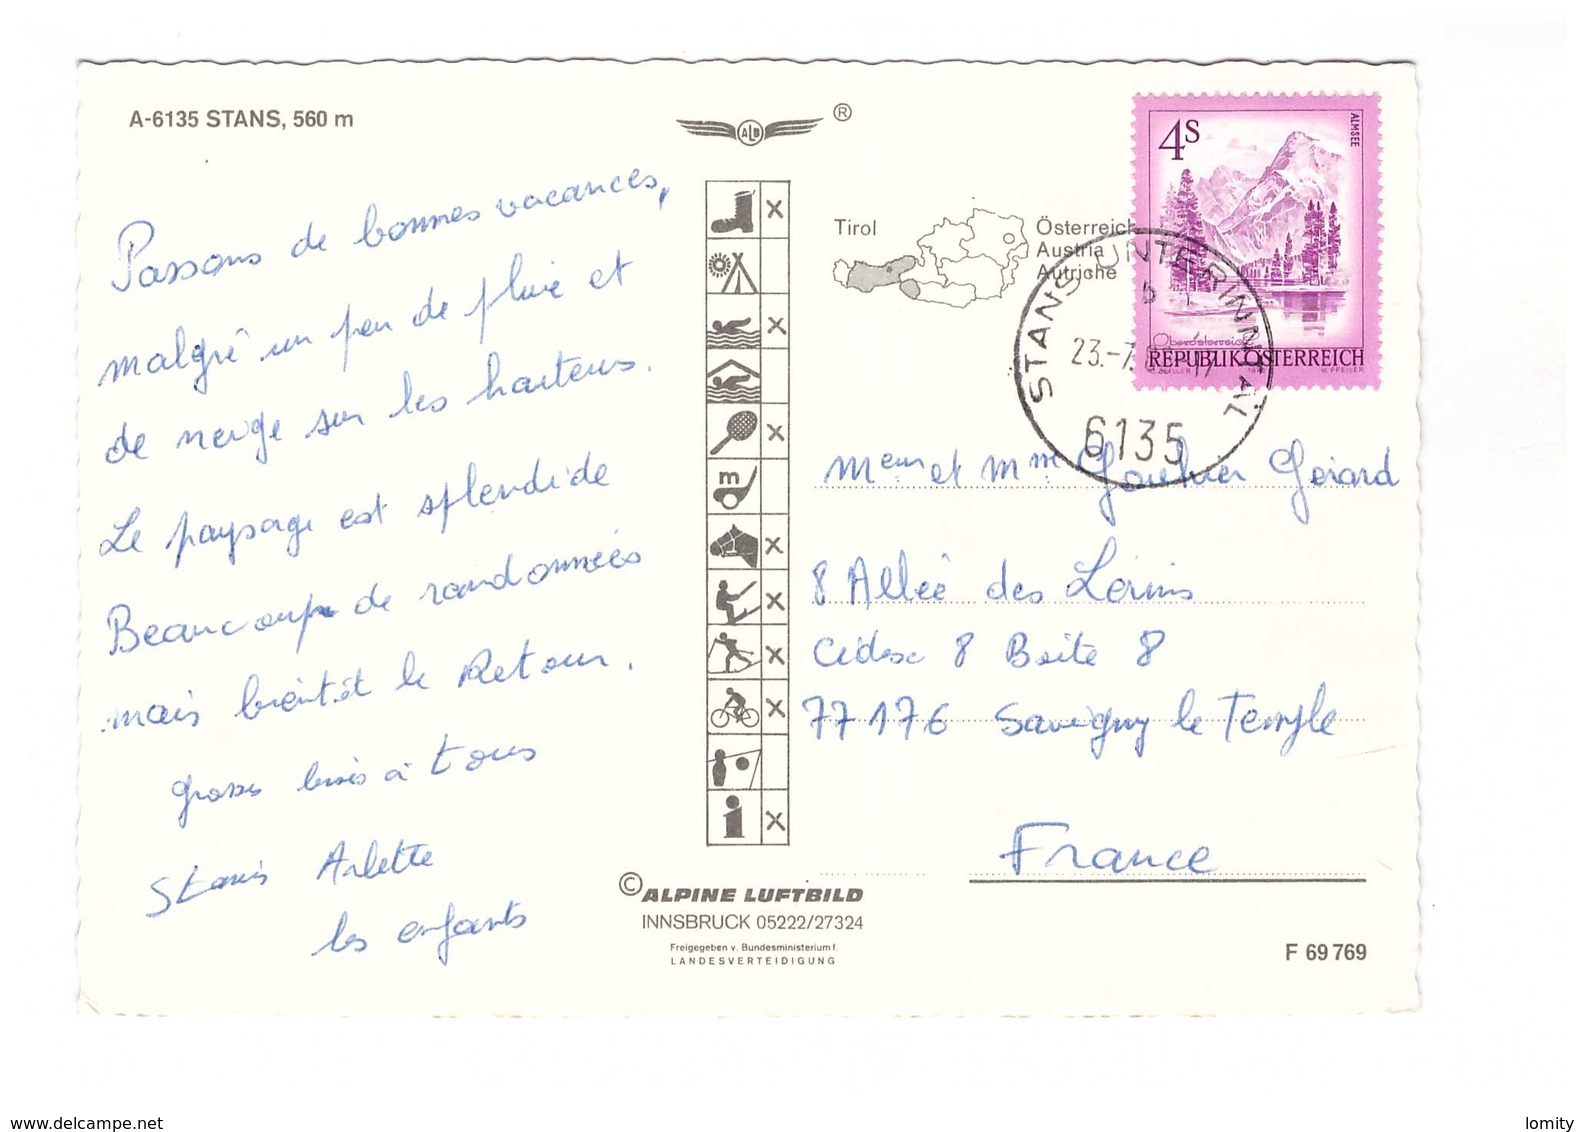 A-6135 STANS, 560 m
Passons de bonnes vacances,
malgré un peu de pluie et
de neige sur les hauteurs.
Le paysage est splendide
Beaucoup de randonnées
mais bientôt le Retour.
grosses bises à tous
Arlette
les enfants
ALB ®
m
i
Tirol
Österreich
Austria
Autriche
4S
ALMSEE
Oberösterreich
REPUBLIK ÖSTERREICH
W. PFEILER
STANS UNTERINNTAL
23.-7.
6135
Meur et Mme Gérard
8 Allée des
Cidex 8 Boite 8
77176 Savigny le Temple
France
© ALPINE LUFTBILD
INNSBRUCK 05222/27324
Freigegeben v. Bundesministerium f.
LANDESVERTEIDIGUNG
F 69 769
www.delcampe.net
lomity